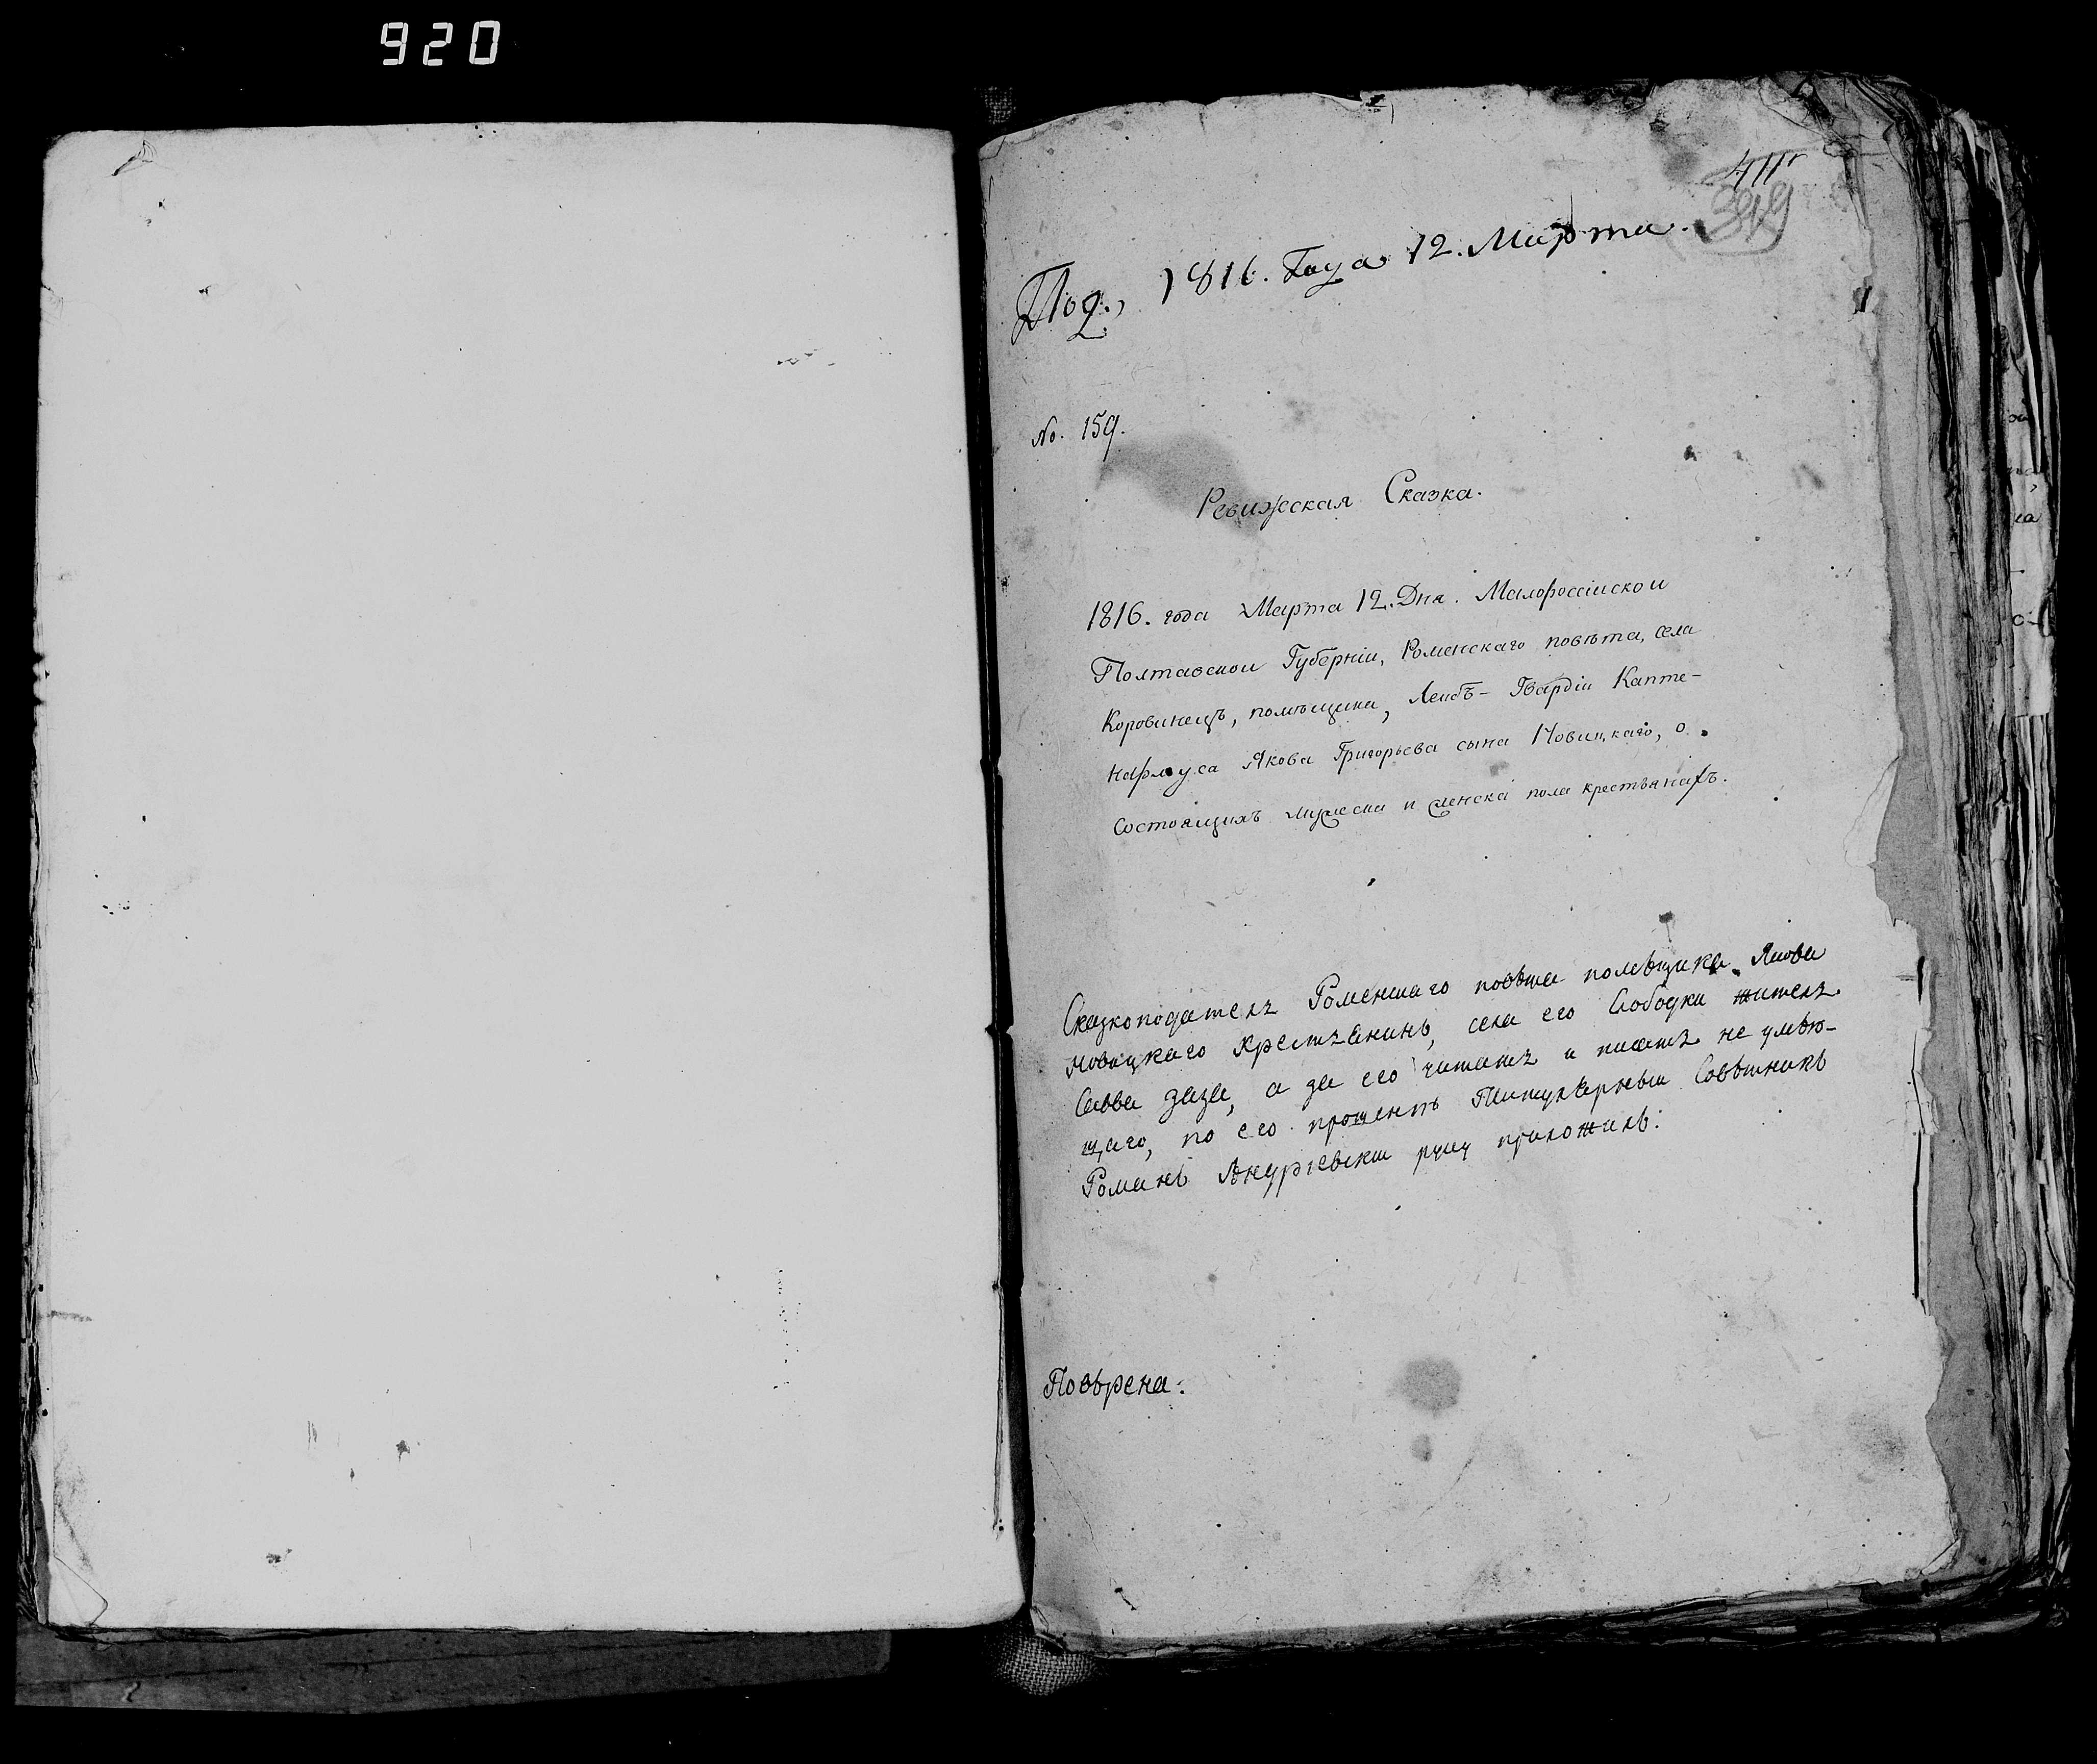 920
411
399
Под., 1816. Года 12. Марта.
No. 159.
Ревижская Сказка.
1816. года Марта 12. Дня. Малороссійскои
Полтавскои Губерніи, Роменскаго повѣта, села
Коровинецъ, помѣщика, Леибъ-Гвардіи Капте-
нармуса Якова Григорьева сына Новицкаго, о
состоящихъ мужеска и женска пола крестьянахъ.
Сказкоподатель Роменскаго повѣта помѣщика Якова
Новицкаго крестьянинъ, села его Слободки житель
Савва Заза, а за его читать и писать не умѣю-
щаго, по его прошенію Титулярныи Совѣтникъ
Романъ Андріевскіи руку приложилъ:
Повѣрена: